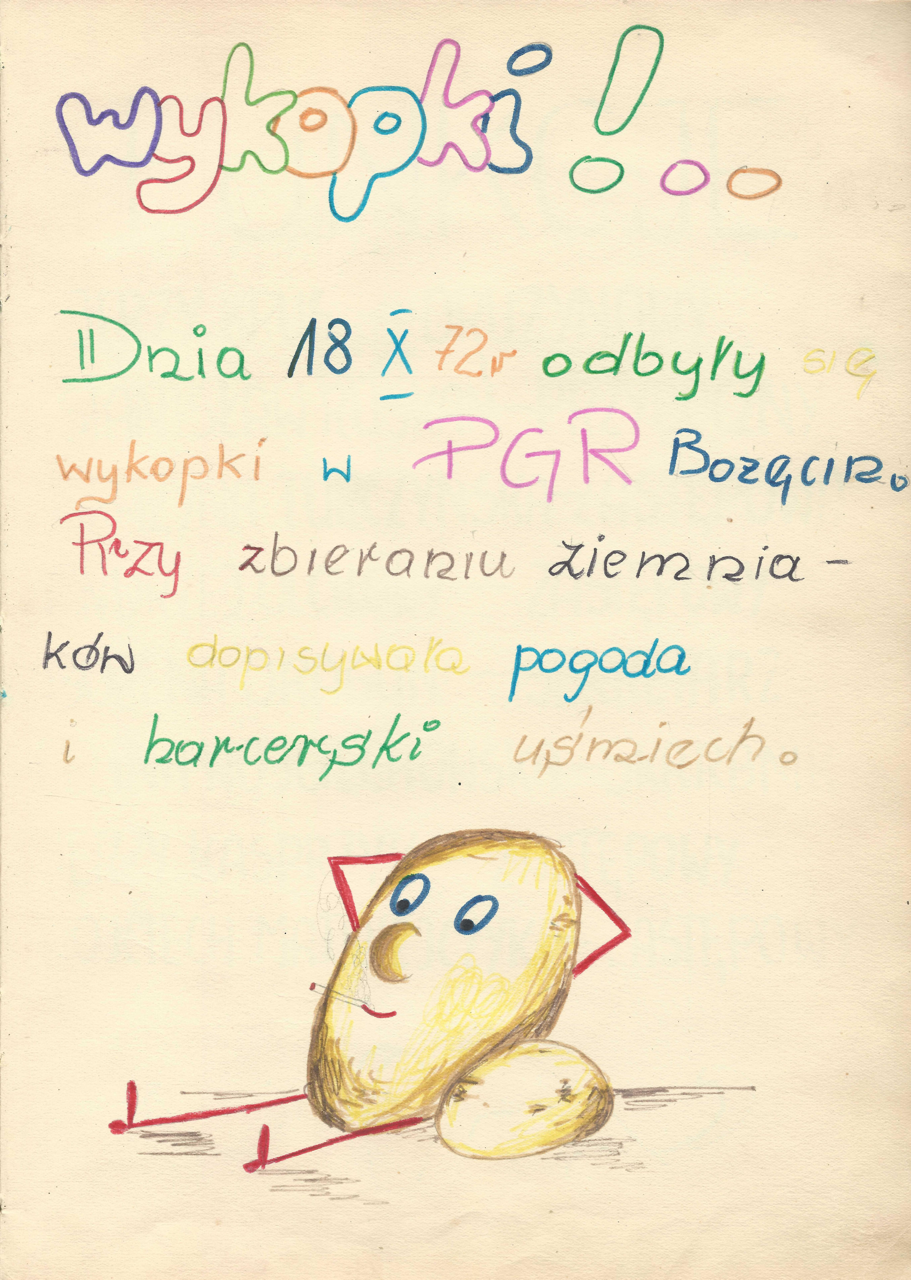 wykopki!...
Dnia 18 X 72r odbyły się
wykopki w PGR Bozęcin.
Przy zbieraniu ziemnia-
ków dopisywała pogoda
i harcerski uśmiech.